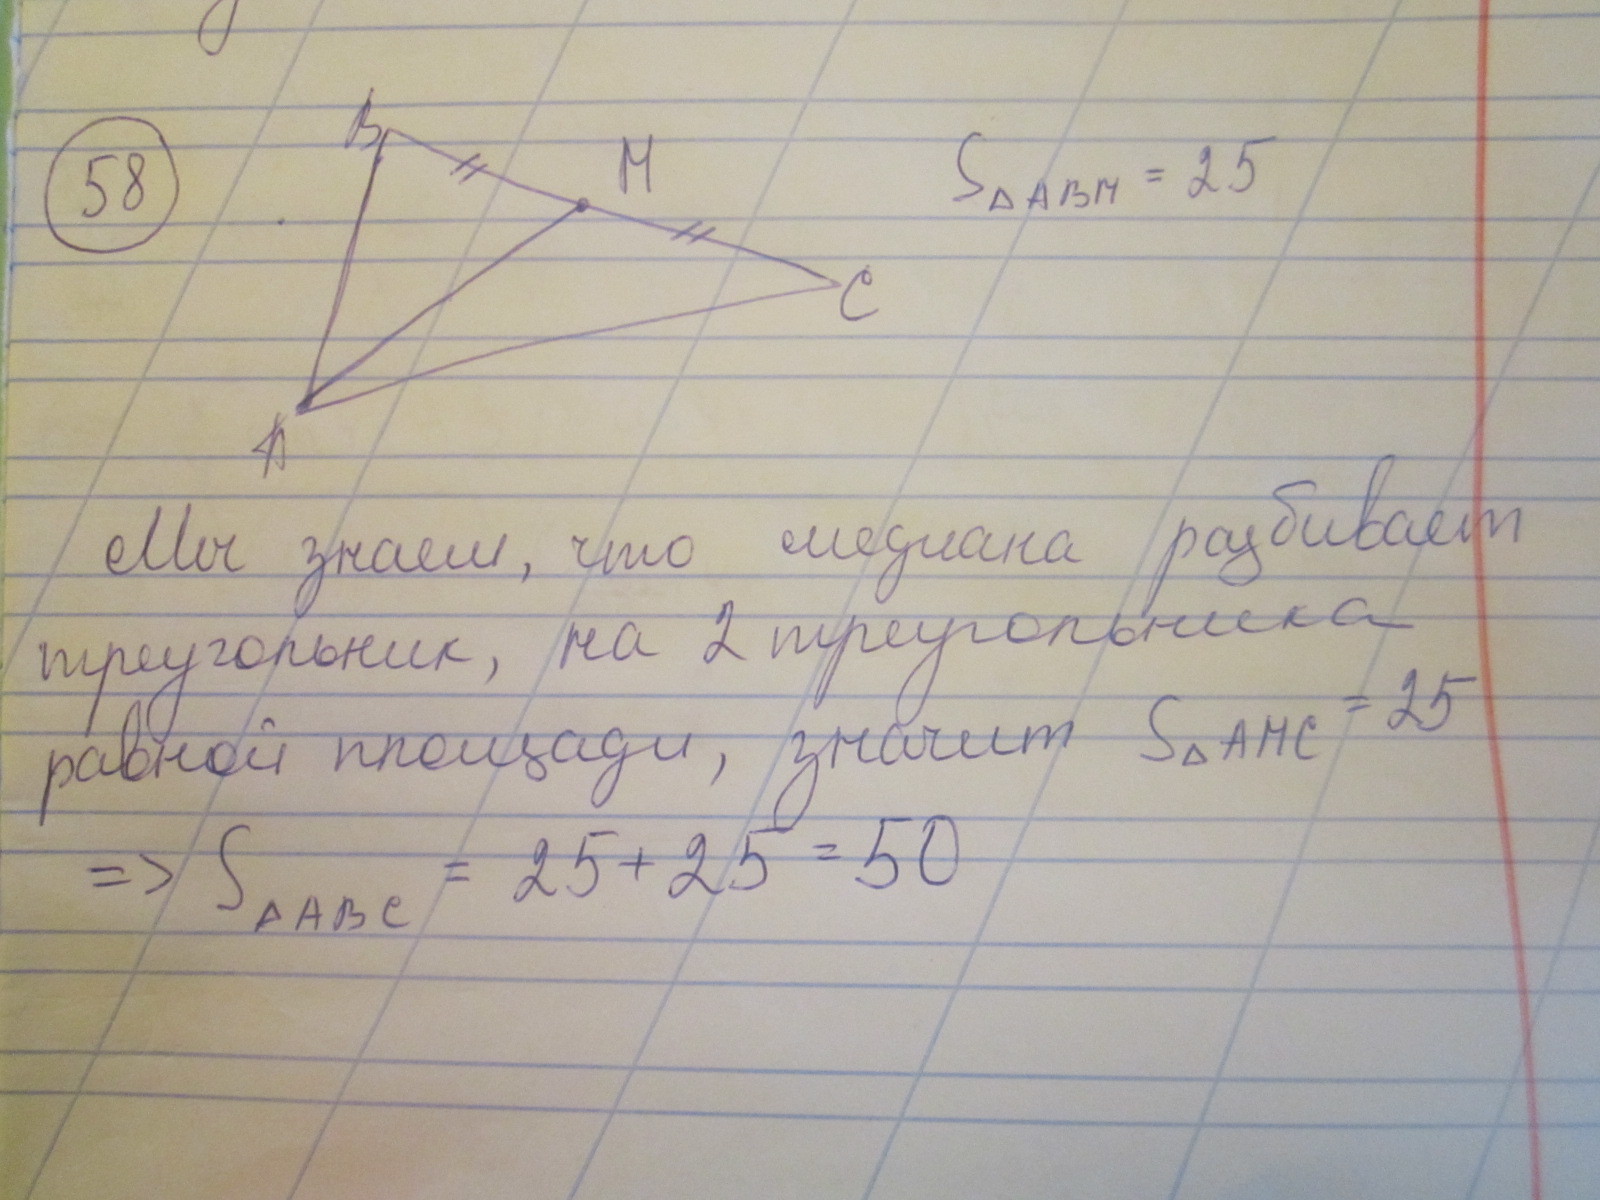 58
B
M
C
A
S△ABM = 25
Мы знаем, что медиана разбивает
треугольник, на 2 треугольника
равной площади, значит S△AMC = 25
=> S△ABC = 25 + 25 = 50